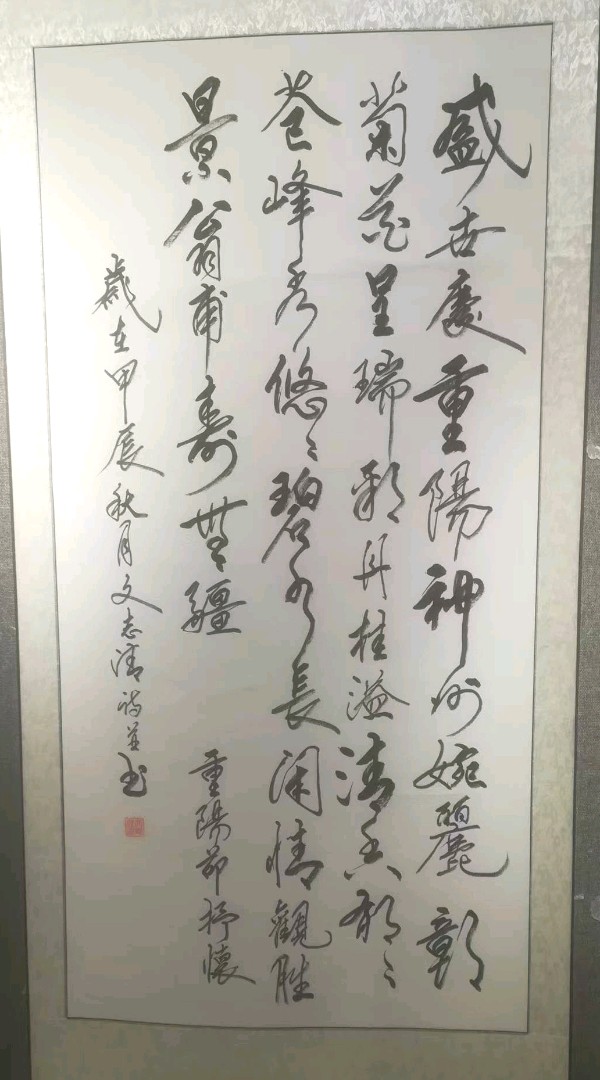 盛世慶重陽神州婉麗彰
菊花呈瑞彩丹桂溢清香郁〻
苍峰秀悠〻碧水長闲情觀胜
景翁甫壽無疆
重陽節抒懷
歲在甲辰秋月文志清詩並书